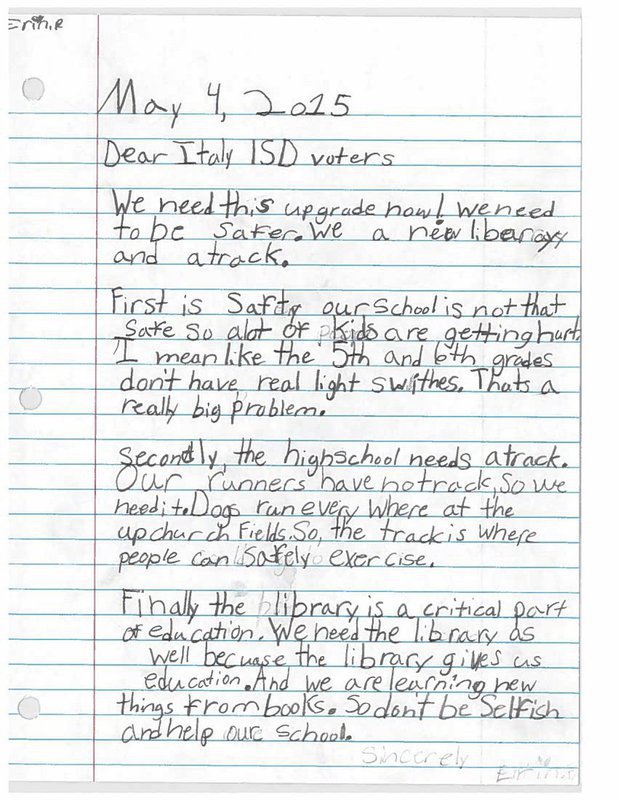 Erin.R
May 4, 2015
Dear Italy ISD voters
We need this upgrade now! we need
to be safer. We a new liberary
and a track.
First is Safty our school is not that
safe so alot of kids are getting hurt.
I mean like the 5th and 6th grades
don't have real light swithes. Thats a
really big problem.
Secondly, the highschool needs a track.
Our runners have no track, so we
need it. Dogs run every where at the
upchurch Fields. So, the track is where
people can safely exercise.
Finally the library is a critical part
of education. We need the library as
well becuase the library gives us
education. And we are learning new
things from books. So don't be Selfish
and help our school.
Sincerely
Erin.R